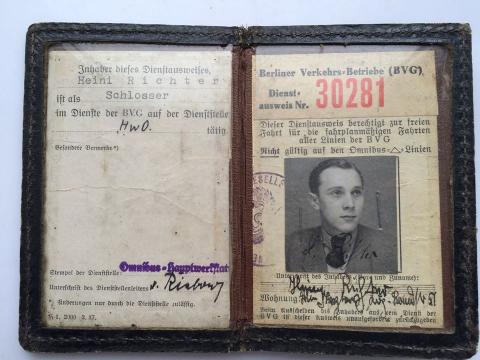 Inhaber dieses Dienstausweises,
Heini Richter
ist als Schlosser
im Dienste der BVG auf der Dienststelle
HwO. tätig
Besondere Vermerke*)
Stempel der Dienststelle: Omnibus-Hauptwerkstatt
Unterschrift des Dienststellenleiters
*) Änderungen nur durch die Dienststelle zulässig.
Berliner Verkehrs-Betriebe (BVG)
Dienst-
ausweis Nr. 30281
Dieser Dienstausweis berechtigt zur freien
Fahrt für die fahrplanmäßigen Fahrten
aller Linien der BVG
Nicht gültig auf den Omnibus-△-Linien
Unterschrift des Inhabers, Vor- und Zuname:
Wohnung:
Beim Ausscheiden des Inhabers aus dem Dienst der
BVG ist dieser Ausweis unaufgefordert zurückzugeben